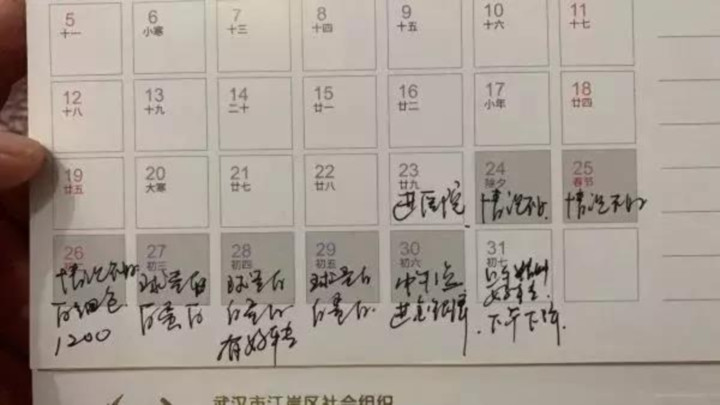 5 6 7 8 9 10 11
十一 小寒 十三 十四 十五 十六 十七
12 13 14 15 16 17 18
十八 十九 二十 廿一 廿二 小年 廿四
19 20 21 22 23 24 25
廿五 大寒 廿七 廿八 廿九 除夕 春节
进医院 情况不好 情况不好
26 27 28 29 30 31
初三 初四 初五 初六 初七
情况不好 球蛋白 球蛋白 球蛋白 中午1点
白细包 白蛋白 白蛋白 白蛋白 好转
1200 有好转 下午下降
武汉市江岸区社会组织